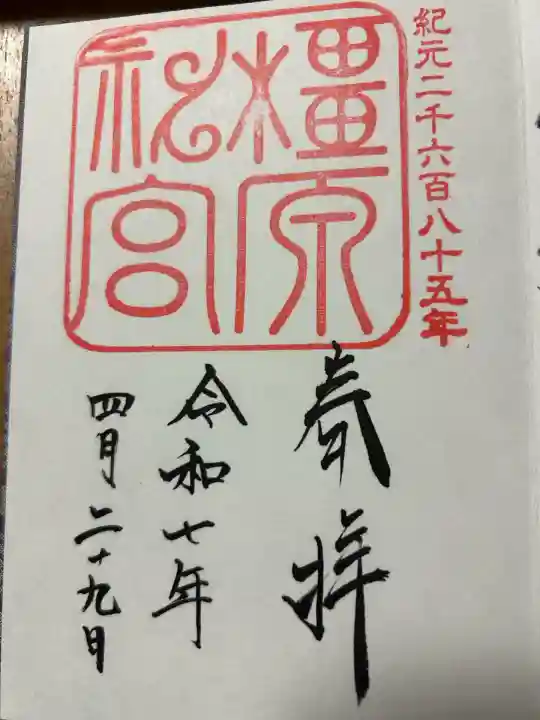 紀元二千六百八十五年
橿原
神宮
奉拝
令和七年
四月二十九日